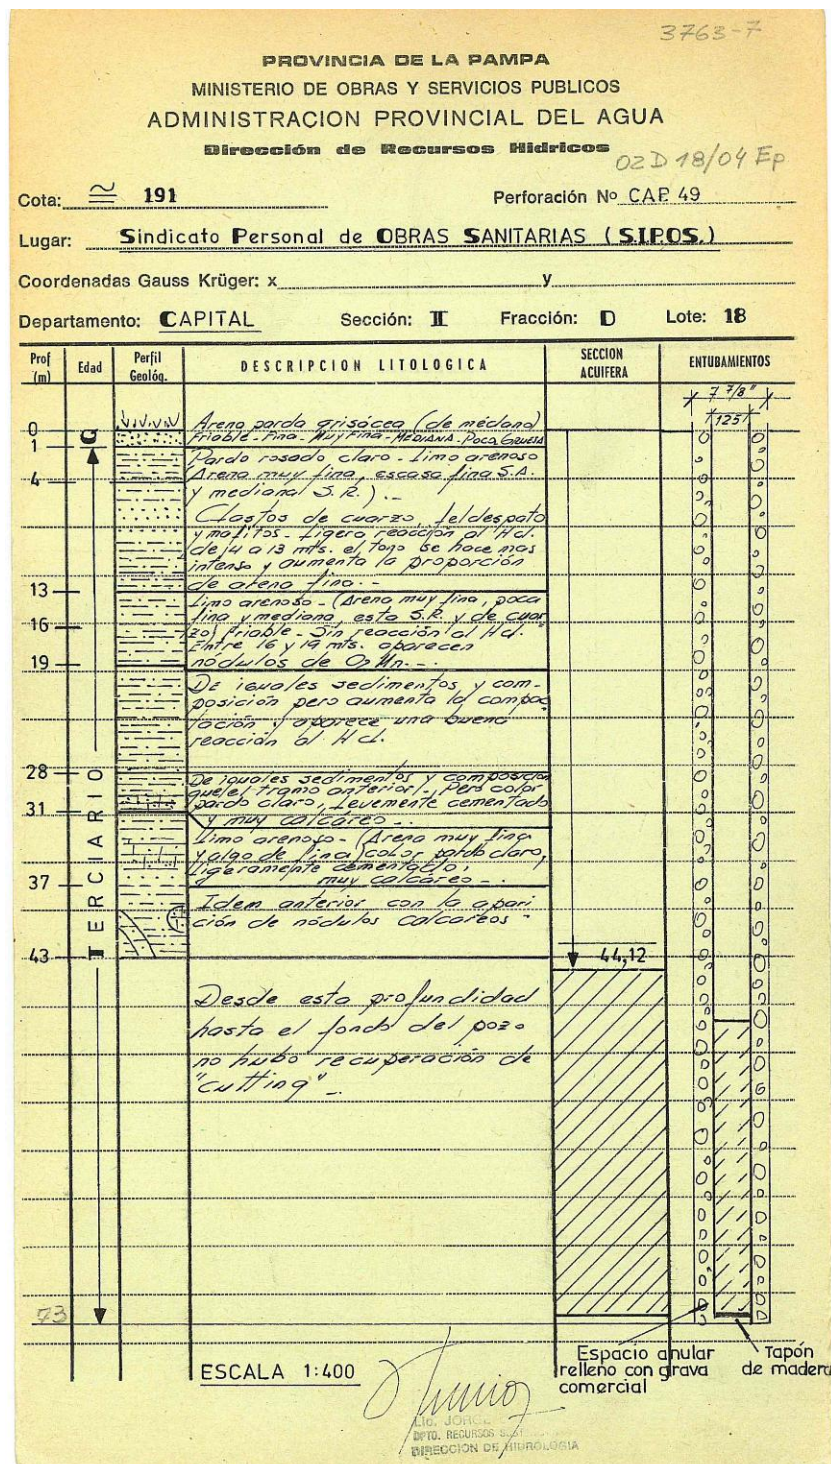 3763-7
PROVINCIA DE LA PAMPA
MINISTERIO DE OBRAS Y SERVICIOS PUBLICOS
ADMINISTRACION PROVINCIAL DEL AGUA
Dirección de Recursos Hídricos
02 D 18/04 Ep
Cota: ≅ 191 Perforación Nº CAP. 49
Lugar: Sindicato Personal de OBRAS SANITARIAS (S.I.P.OS.)
Coordenadas Gauss Krüger: x y
Departamento: CAPITAL Sección: II Fracción: D Lote: 18
Prof (m) Edad Perfil Geológ. DESCRIPCION LITOLOGICA SECCION ACUIFERA ENTUBAMIENTOS
7 7/8"
125
0
1
4
13
16
19
28
31
37
43
73
Q
TERCIARIO
Arena parda grisácea (de médano)
Friable - Fina - Muy Fina - MEDIANA - Poca Gruesa
Pardo rosado claro - Limo arenoso
(Arena muy fina, escasa fina S.A.
y mediana S.R.) .-
Clastos de cuarzo, feldespato
y mafitos - Ligera reacción al Hcl.
de 4 a 13 mts. el tono se hace mas
intenso y aumenta la proporción
de arena fina.-
Limo arenoso - (Arena muy fina, poca
fina y mediana, esta S.R. y de cuar
zo) friable - Sin reacción al Hcl.
Entre 16 y 19 mts. aparecen
nódulos de O2 Mn.-
De iguales sedimentos y com-
posición pero aumenta la compac
tación y aparece una buena
reacción al Hcl.
De iguales sedimentos y composición
que(el tramo anterior). Pero color
pardo claro, Levemente cementado
y muy calcáreo .-
Limo arenoso - (Arena muy fina
y algo de fina) color pardo claro,
Ligeramente cementado,
muy calcáreo -.-
Idem anterior con la apari
ción de nódulos calcáreos -
44,12
Desde esta profundidad
hasta el fondo del pozo
no hubo recuperación de
"cutting" -
Espacio anular
relleno con grava
comercial
Tapón
de madera
ESCALA 1:400
Lic. JORGE
DPTO. RECURSOS
DIRECCION DE HIDROLOGIA